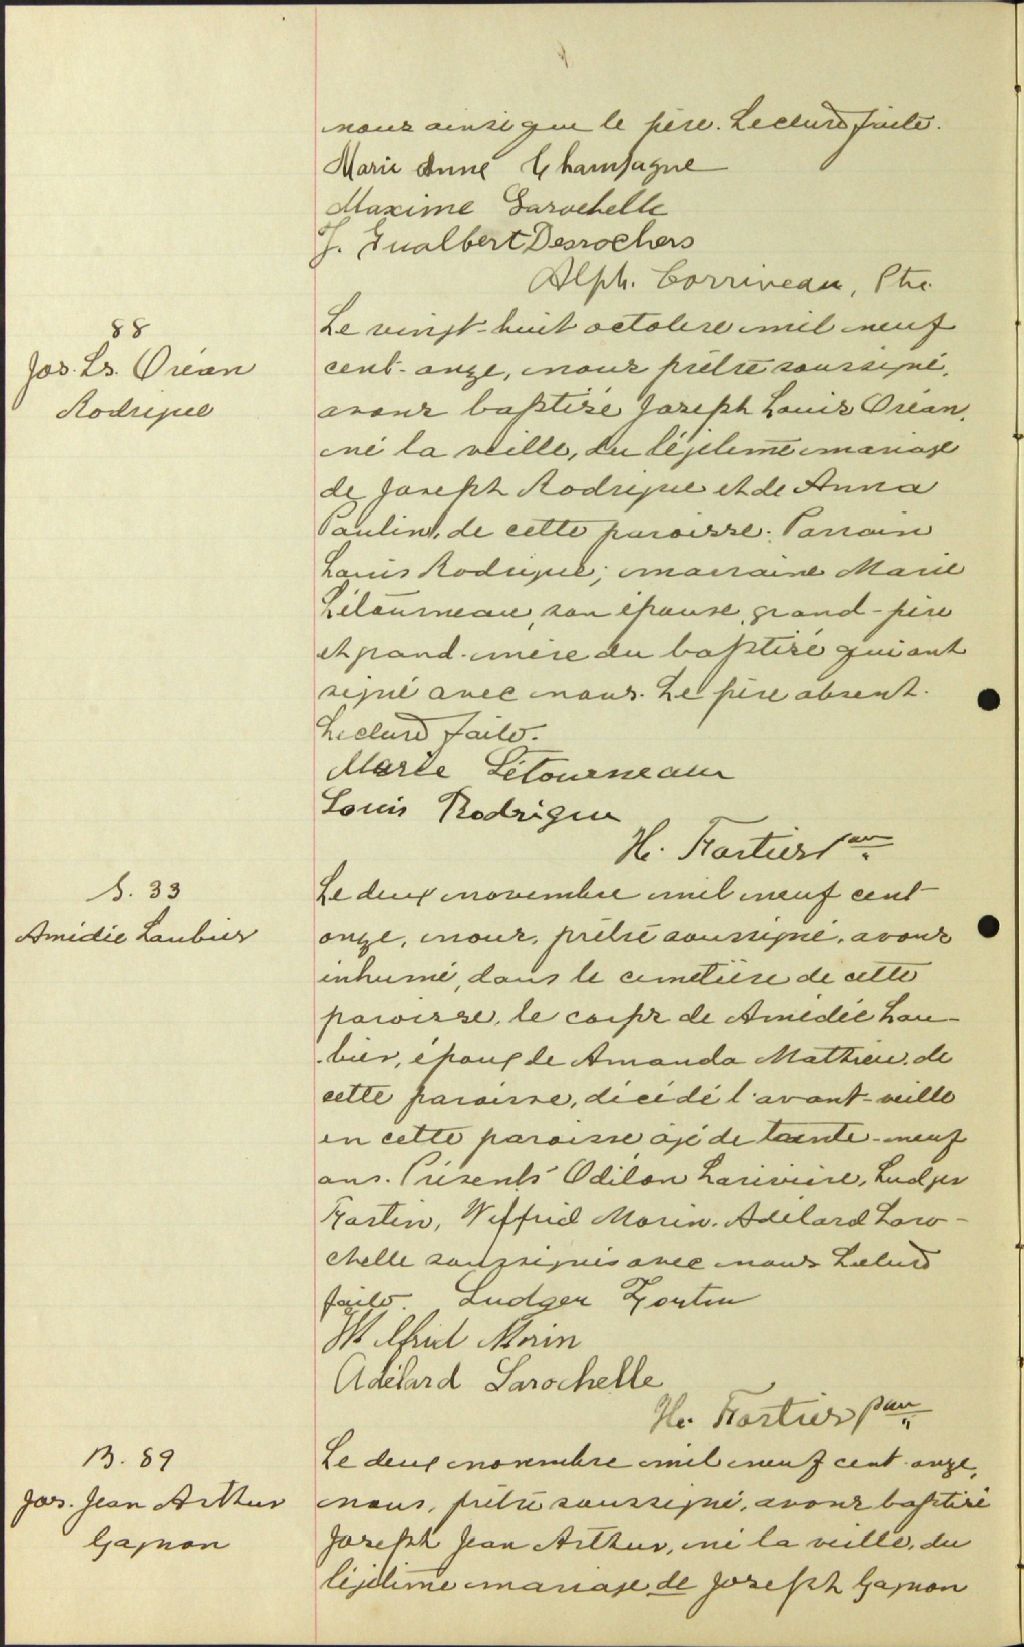 nous ainsi que le père. Lecture faite.
Marie Anne Champagne
Maxime Larochelle
J. Gualbert Desrochers
Alph. Corriveau, Ptre.
88
Jos. Ls. Oréan
Rodrigue
Le vingt-huit octobre mil neuf
cent-onze, nous prêtre soussigné,
avons baptisé Joseph Louis Oréan,
né la veille, du légitime mariage
de Joseph Rodrigue et de Anna
Poulin, de cette paroisse. Parrain
Louis Rodrigue; marraine Marie
Létourneau, son épouse, grand-père
et grand-mère du baptisé qui ont
signé avec nous. Le père absent.
Lecture faite.
Marie Létourneau
Louis Rodrigue
H. Fortier
S. 33
Amédée Laubier
Le deux novembre mil neuf cent
onze, nous, prêtre soussigné, avons
inhumé, dans le cimetière de cette
paroisse, le corps de Amédée Lau-
bier, époux de Amanda Mathieu, de
cette paroisse, décédé l'avant-veille
en cette paroisse âgé de trente-neuf
ans. Présents Odilon Larivière, Ludger
Fortin, Wilfrid Morin, Adélard Laro-
chelle soussignés avec nous Lecture
faite. Ludger Fortin
Wilfrid Morin
Adélard Larochelle
H. Fortier
B. 89
Jos. Jean Arthur
Gagnon
Le deux novembre mil neuf cent onze,
nous, prêtre soussigné, avons baptisé
Joseph Jean Arthur, né la veille, du
légitime mariage de Joseph Gagnon